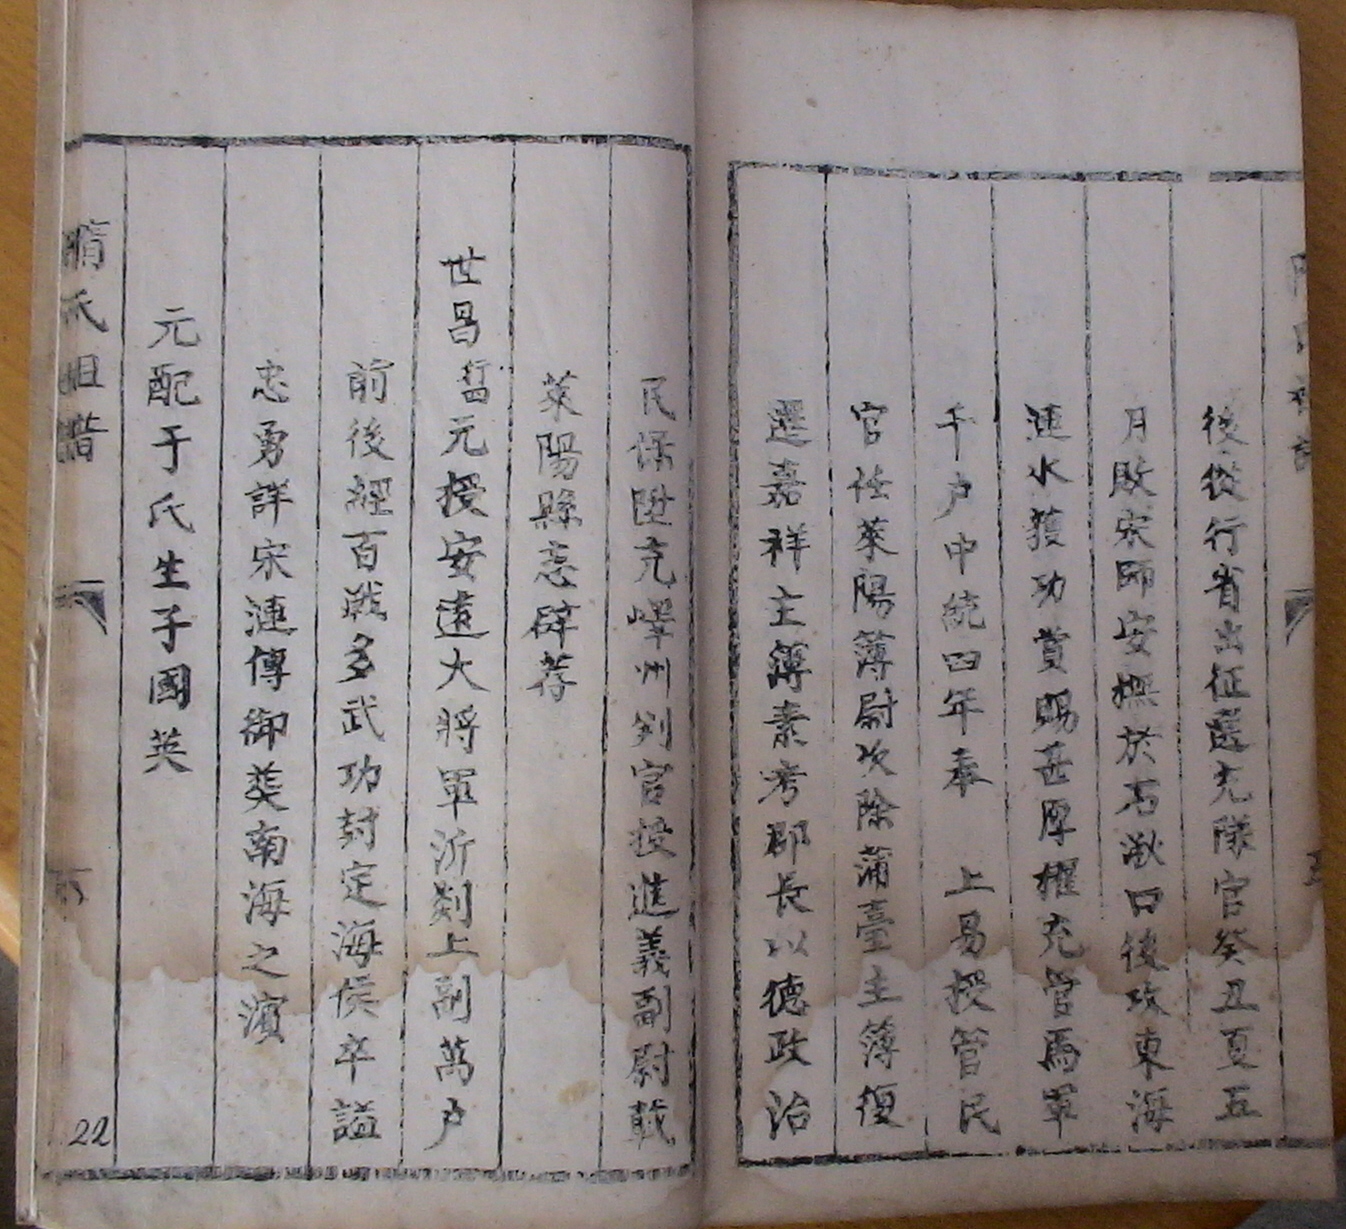 後從行省出征選充隊官癸丑夏五
月敗宋師安撫於石湫口後攻東海
漣水獲功賞賜甚厚擢充管馬軍
千户中統四年奉 上易授管民
官任萊陽簿尉次除蒲臺主簿復
選嘉祥主簿素考郡長以德政治
民保陞充嶧州判官授進義副尉載
萊陽縣志辟荐
世昌 行四 元授安遠大將軍沂剡上副萬户
前後經百戰多武功封定海侯卒謚
忠勇詳宋漣傳御葵南海之濱
元配于氏生子國英
隋氏祖譜
22